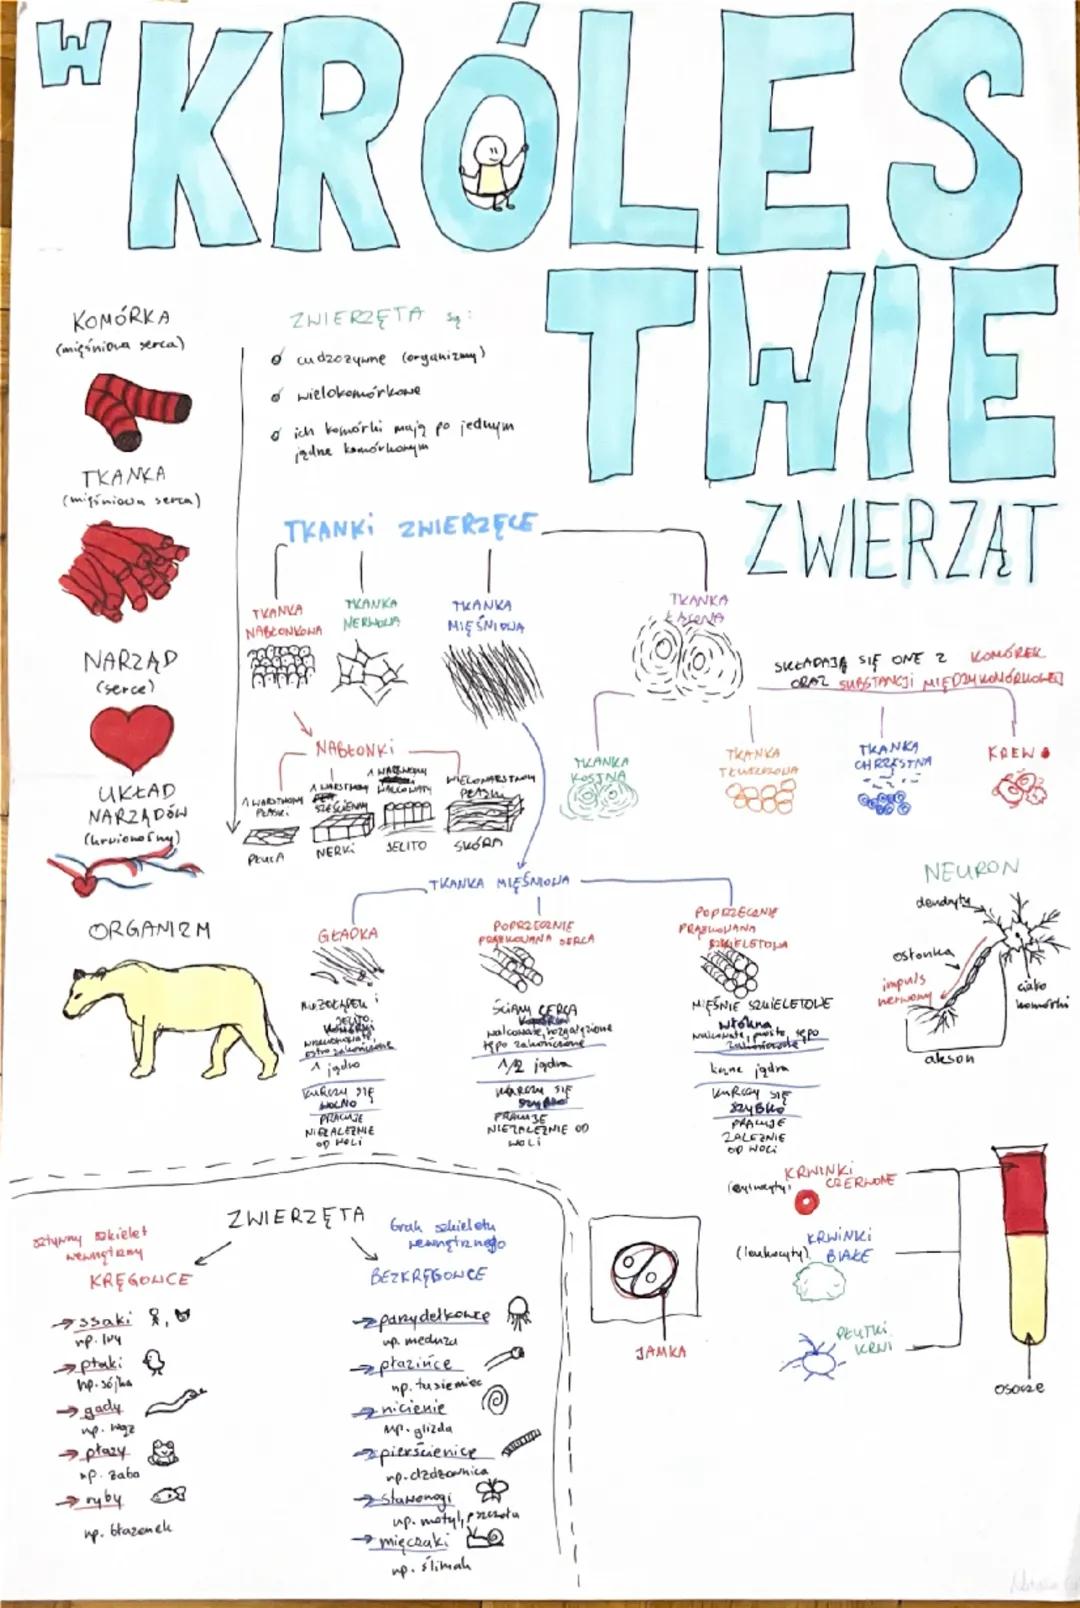 W KRÓLES
TWIE
ZWIERZĄT
KOMÓRKA
(mięśniowa serca)
TKANKA
(mięśniowa serca)
NARZĄD
(serce)
UKŁAD
NARZĄDÓW
(krwionośny)
ORGANIZM
ZWIERZĘTA są:
cudzożywne (organizmy)
wielokomórkowe
ich komórki mają po jednym
jądrze komórkowym
TKANKI ZWIERZĘCE
TKANKA
NABŁONKOWA
TKANKA
NERWOWA
TKANKA
MIĘŚNIOWA
TKANKA
ŁĄCZNA
SKŁADAJĄ SIĘ ONE Z KOMÓREK
ORAZ SUBSTANCJI MIĘDZYKOMÓRKOWEJ
NABŁONKI
1 WARSTWOWY
PŁASKI
PŁUCA
1 WARSTWOWY
SZEŚCIENNY
NERKI
1 WARSTWOWY
WALCOWATY
JELITO
WIELOWARSTWOWY
PŁASKI
SKÓRA
TKANKA
KOSTNA
TKANKA
TŁUSZCZOWA
TKANKA
CHRZĘSTNA
KREW
TKANKA MIĘŚNIOWA
GŁADKA
JELITO
wrzecionowate,
ostro zakończone
1 jądro
KURCZY SIĘ
WOLNO
PRACUJE
NIEZALEŻNIE
OD WOLI
POPRZECZNIE
PRĄŻKOWANA SERCA
ŚCIANY SERCA
walcowate, rozgałęzione
tępo zakończone
1/2 jądra
KURCZY SIĘ
SZYBKO
PRACUJE
NIEZALEŻNIE OD
WOLI
POPRZECZNIE
PRĄŻKOWANA
SZKIELETOWA
MIĘŚNIE SZKIELETOWE
włókna
walcowate, proste, tępo
zakończone
jądra
KURCZY SIĘ
SZYBKO
PRACUJE
ZALEŻNIE
OD WOLI
NEURON
dendryty
osłonka
impuls
nerwowy
ciało
komórki
akson
ZWIERZĘTA
sztywny szkielet
wewnętrzny
KRĘGOWCE
→ ssaki
np. lwy
→ ptaki
np. sójka
→ gady
np. wąż
→ płazy
np. żaba
→ ryby
np. błazenek
brak szkieletu
wewnętrznego
BEZKRĘGOWCE
→ parzydełkowce
np. meduza
→ płazińce
np. tasiemiec
→ nicienie
np. glizda
→ pierścienice
np. dżdżownica
→ stawonogi
np. motyl, pszczoła
→ mięczaki
np. ślimak
JAMKA
KRWINKI
CZERWONE
(erytrocyty)
KRWINKI
BIAŁE
(leukocyty)
PŁYTKI
KRWI
osocze